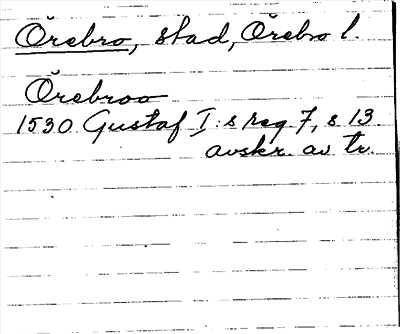 Örebro, stad, Örebro l.
Örebroo
1530 Gustaf I:s reg 7, s 13.
avskr. av tr.